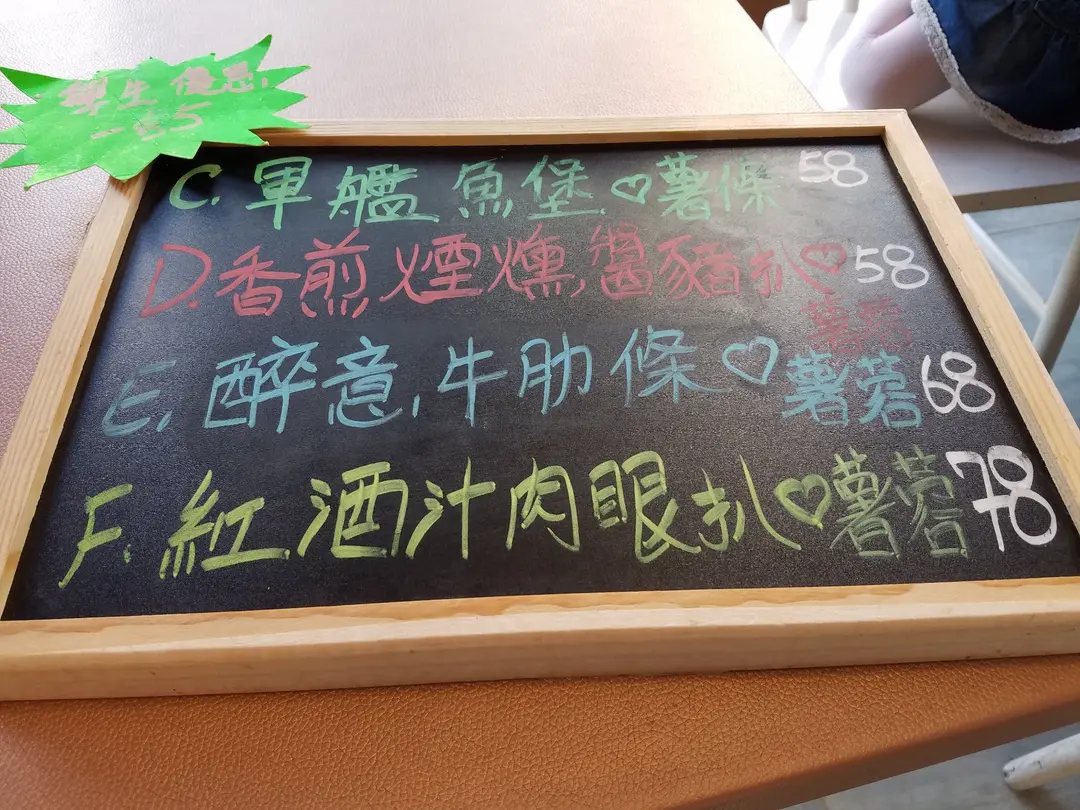 學生優惠
-$5
C. 軍艦魚堡♡薯條 58
D. 香煎煙燻醬豬扒♡ 58
薯蓉
E. 醉意牛肋條♡薯蓉 68
F. 紅酒汁肉眼扒♡薯蓉 78